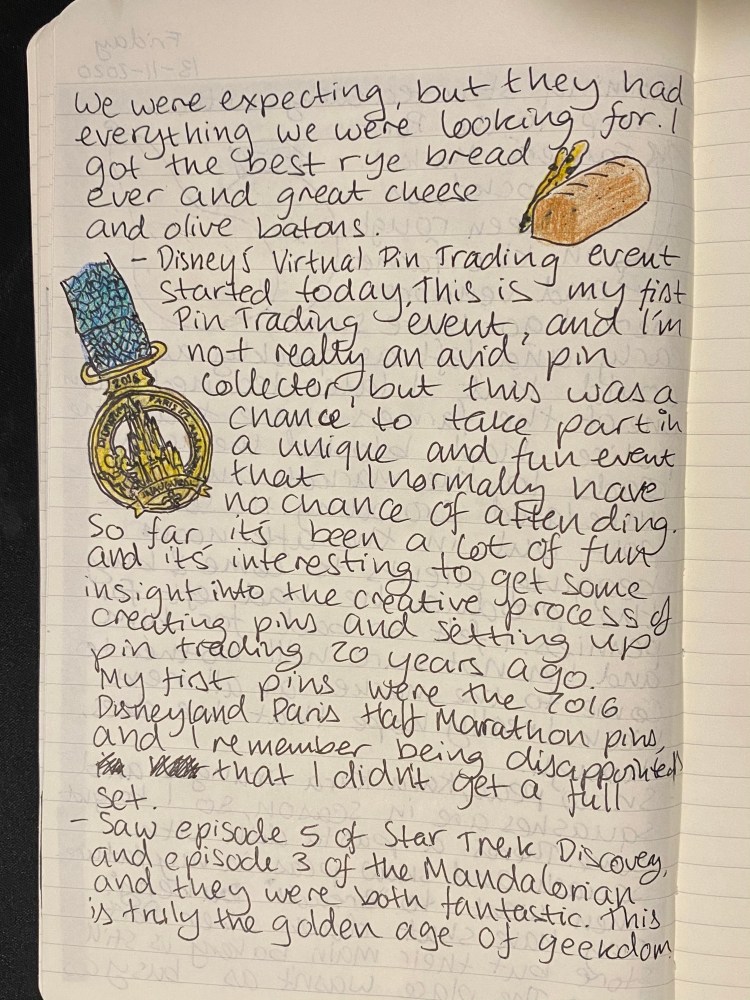 Friday
13-11-2020
We were expecting, but they had
everything we were looking for. I
got the best rye bread
ever and great cheese
and olive batons.
- Disney's Virtual Pin Trading event
started today. This is my first
Pin Trading event, and I'm
not really an avid pin
collector, but this was a
chance to take part in
a unique and fun event
that I normally have
no chance of attending.
So far it's been a lot of fun
and it's interesting to get some
insight into the creative process of
creating pins and setting up
pin trading 20 years ago.
My first pins were the 2016
Disneyland Paris Half Marathon pins,
and I remember being disappointed
that I didn't get a full
set.
- Saw episode 5 of Star Trek Discovey,
and episode 3 of the Mandalorian
and they were both fantastic. This
is truly the golden age of geekdom
2016
INAUGURAL